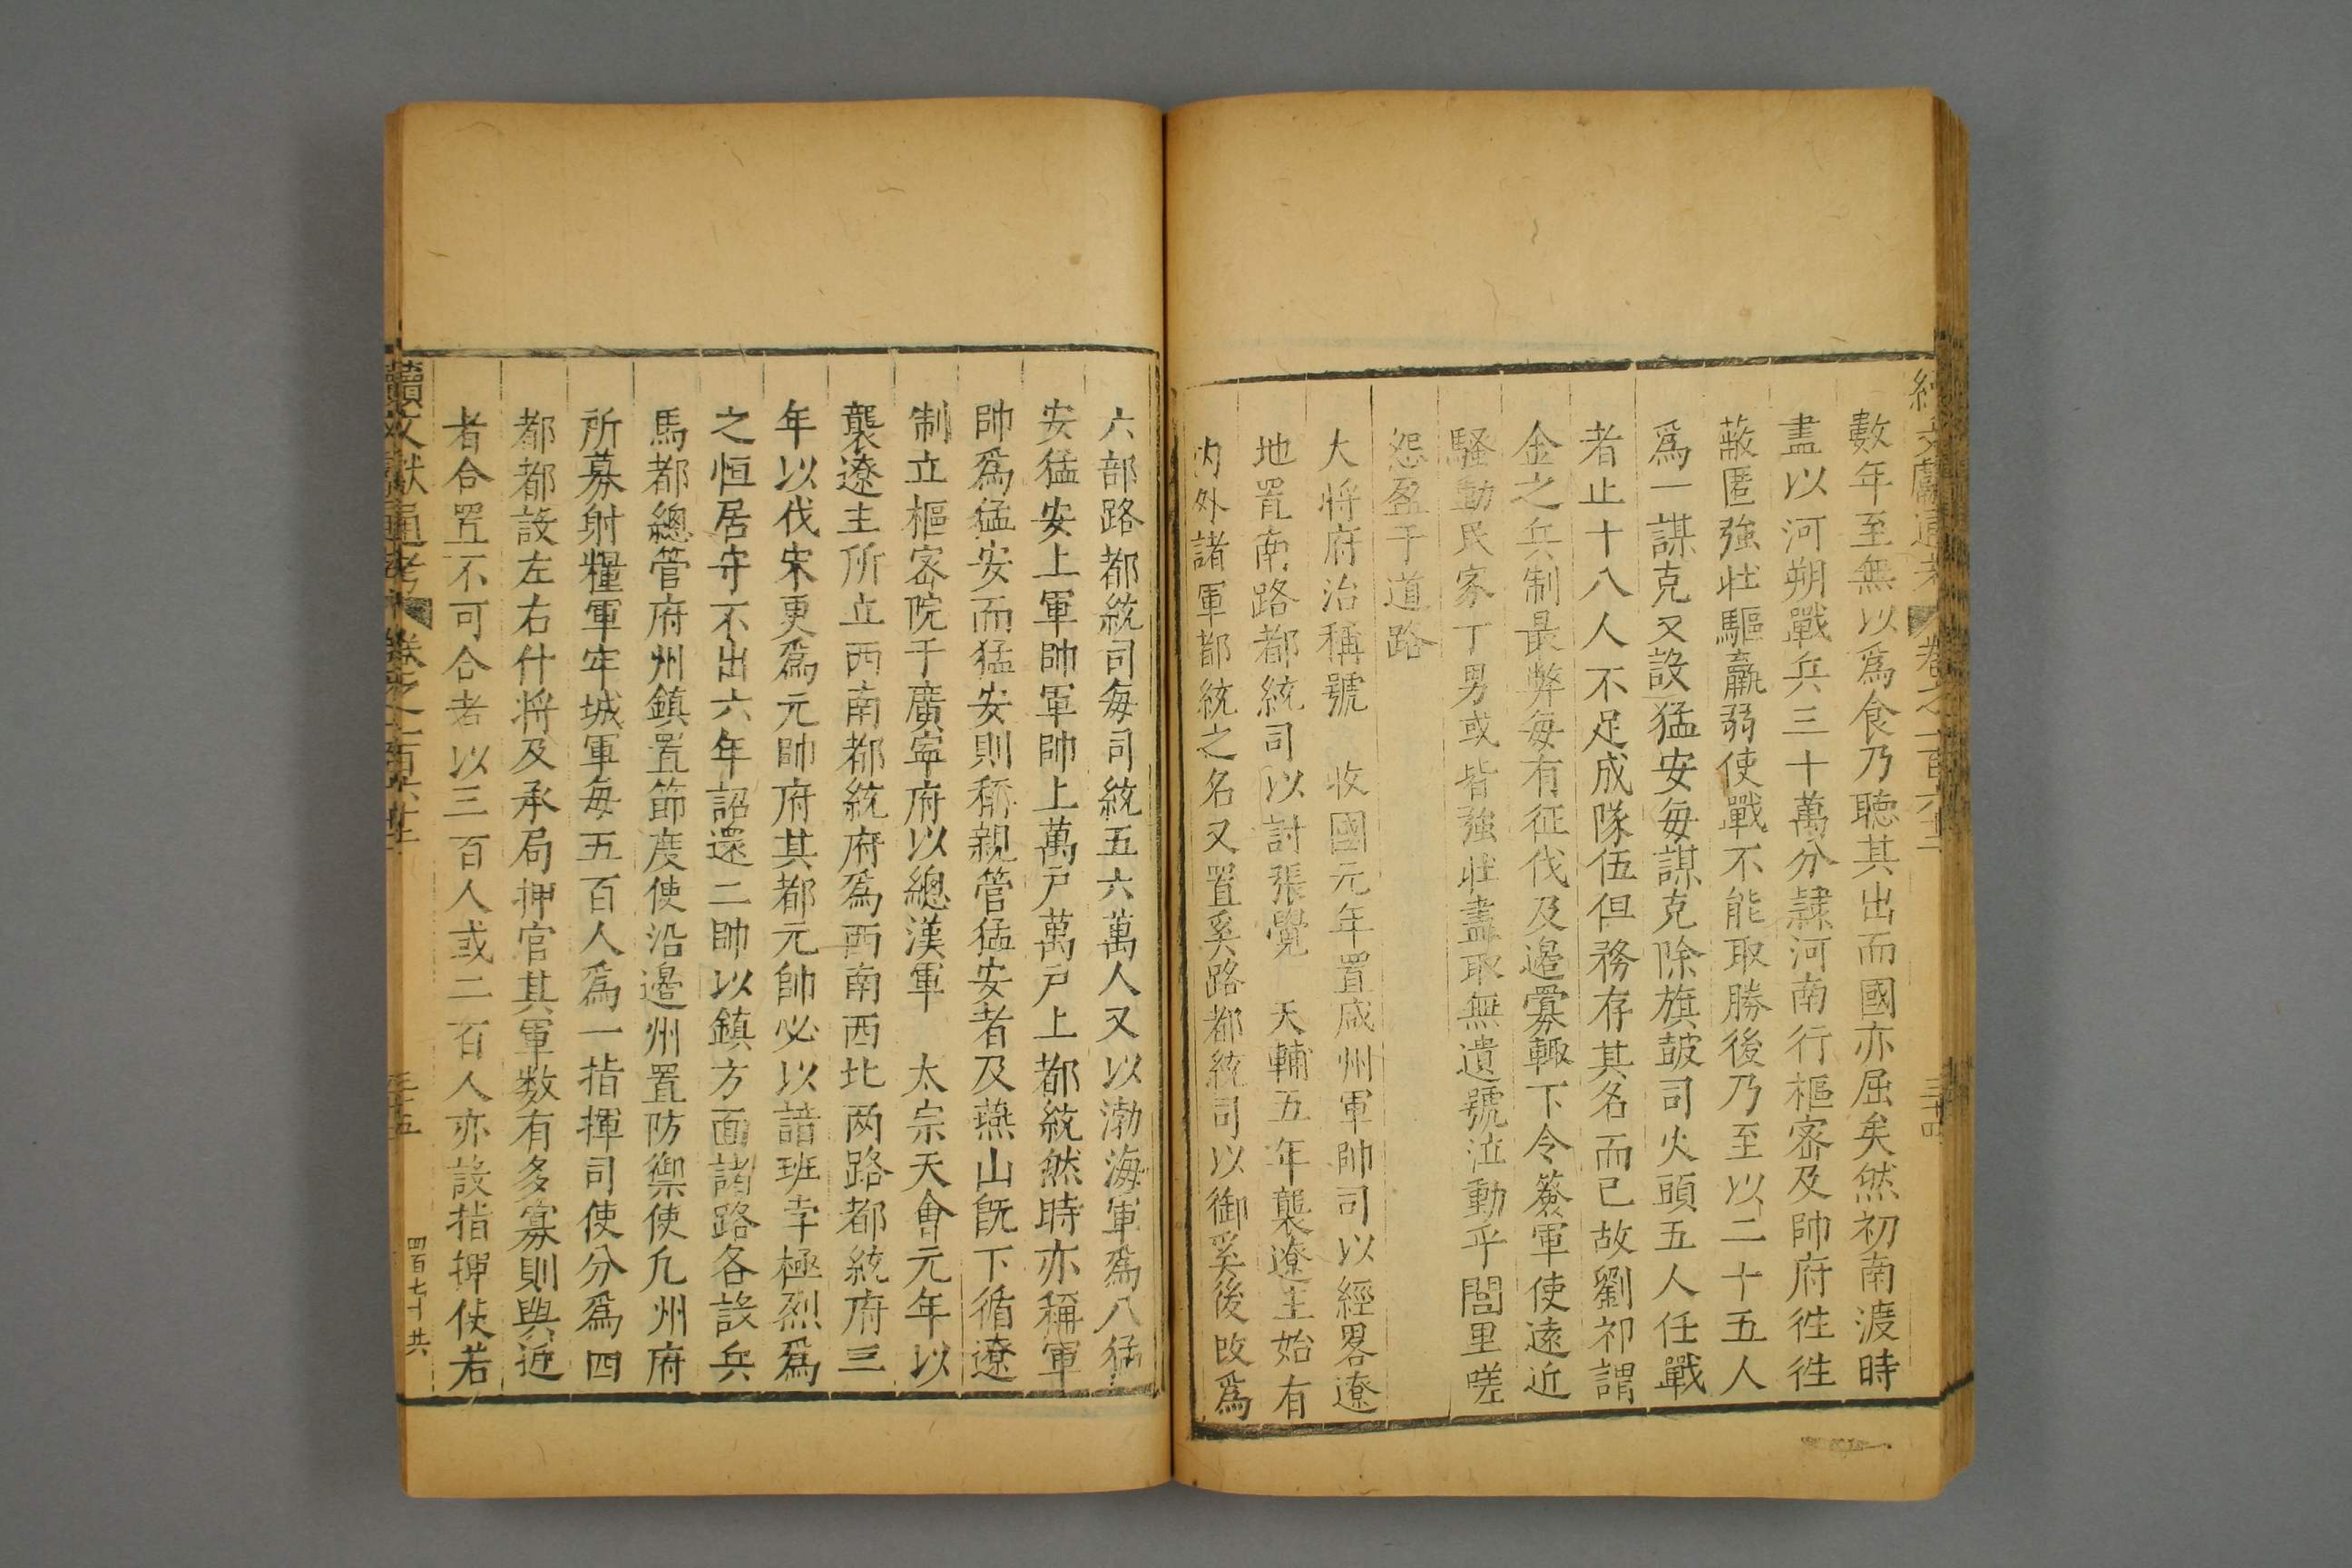 數年至無以爲食乃聽其出而國亦屈矣然初南渡時
盡以河朔戰兵三十萬分隸河南行樞密及帥府徃徃
蔽匿強壯驅羸弱使戰不能取勝後乃至以二十五人
爲一謀克又設猛安每謀克除旗鼓司火頭五人任戰
者止十八人不足成隊伍但務存其名而已故劉祁謂
金之兵制最弊每有征伐及邊釁輒下令簽軍使遠近
騷動民家丁男或皆強壯盡取無遺號泣動乎閭里嗟
怨盈于道路
大将府治稱號 收國元年置咸州軍帥司以經畧遼
地置南路都統司以討張覺 天輔五年襲遼主始有
内外諸軍都統之名又置奚路都統司以御奚後改爲
六部路都統司每司統五六萬人又以渤海軍爲八猛
安猛安上軍帥軍帥上萬户萬户上都統然時亦稱軍
帥爲猛安而猛安則稱親管猛安者及燕山旣下循遼
制立樞密院于廣寧府以總漢軍 太宗天會元年以
襲遼主所立西南都統府爲西南西北两路都統府三
年以伐宋更爲元帥府其都元帥必以諳班孛極烈爲
之恒居守不出六年詔還二帥以鎮方面諸路各設兵
馬都總管府州鎮置節度使沿邊州置防禦使凢州府
所募射糧軍牢城軍每五百人爲一指揮司使分爲四
都都設左右什将及承局押官其軍数有多寡則與近
者合置不可合者以三百人或二百人亦設指揮使若
續文獻通考 卷之一百六十二
三十五
四百七十共